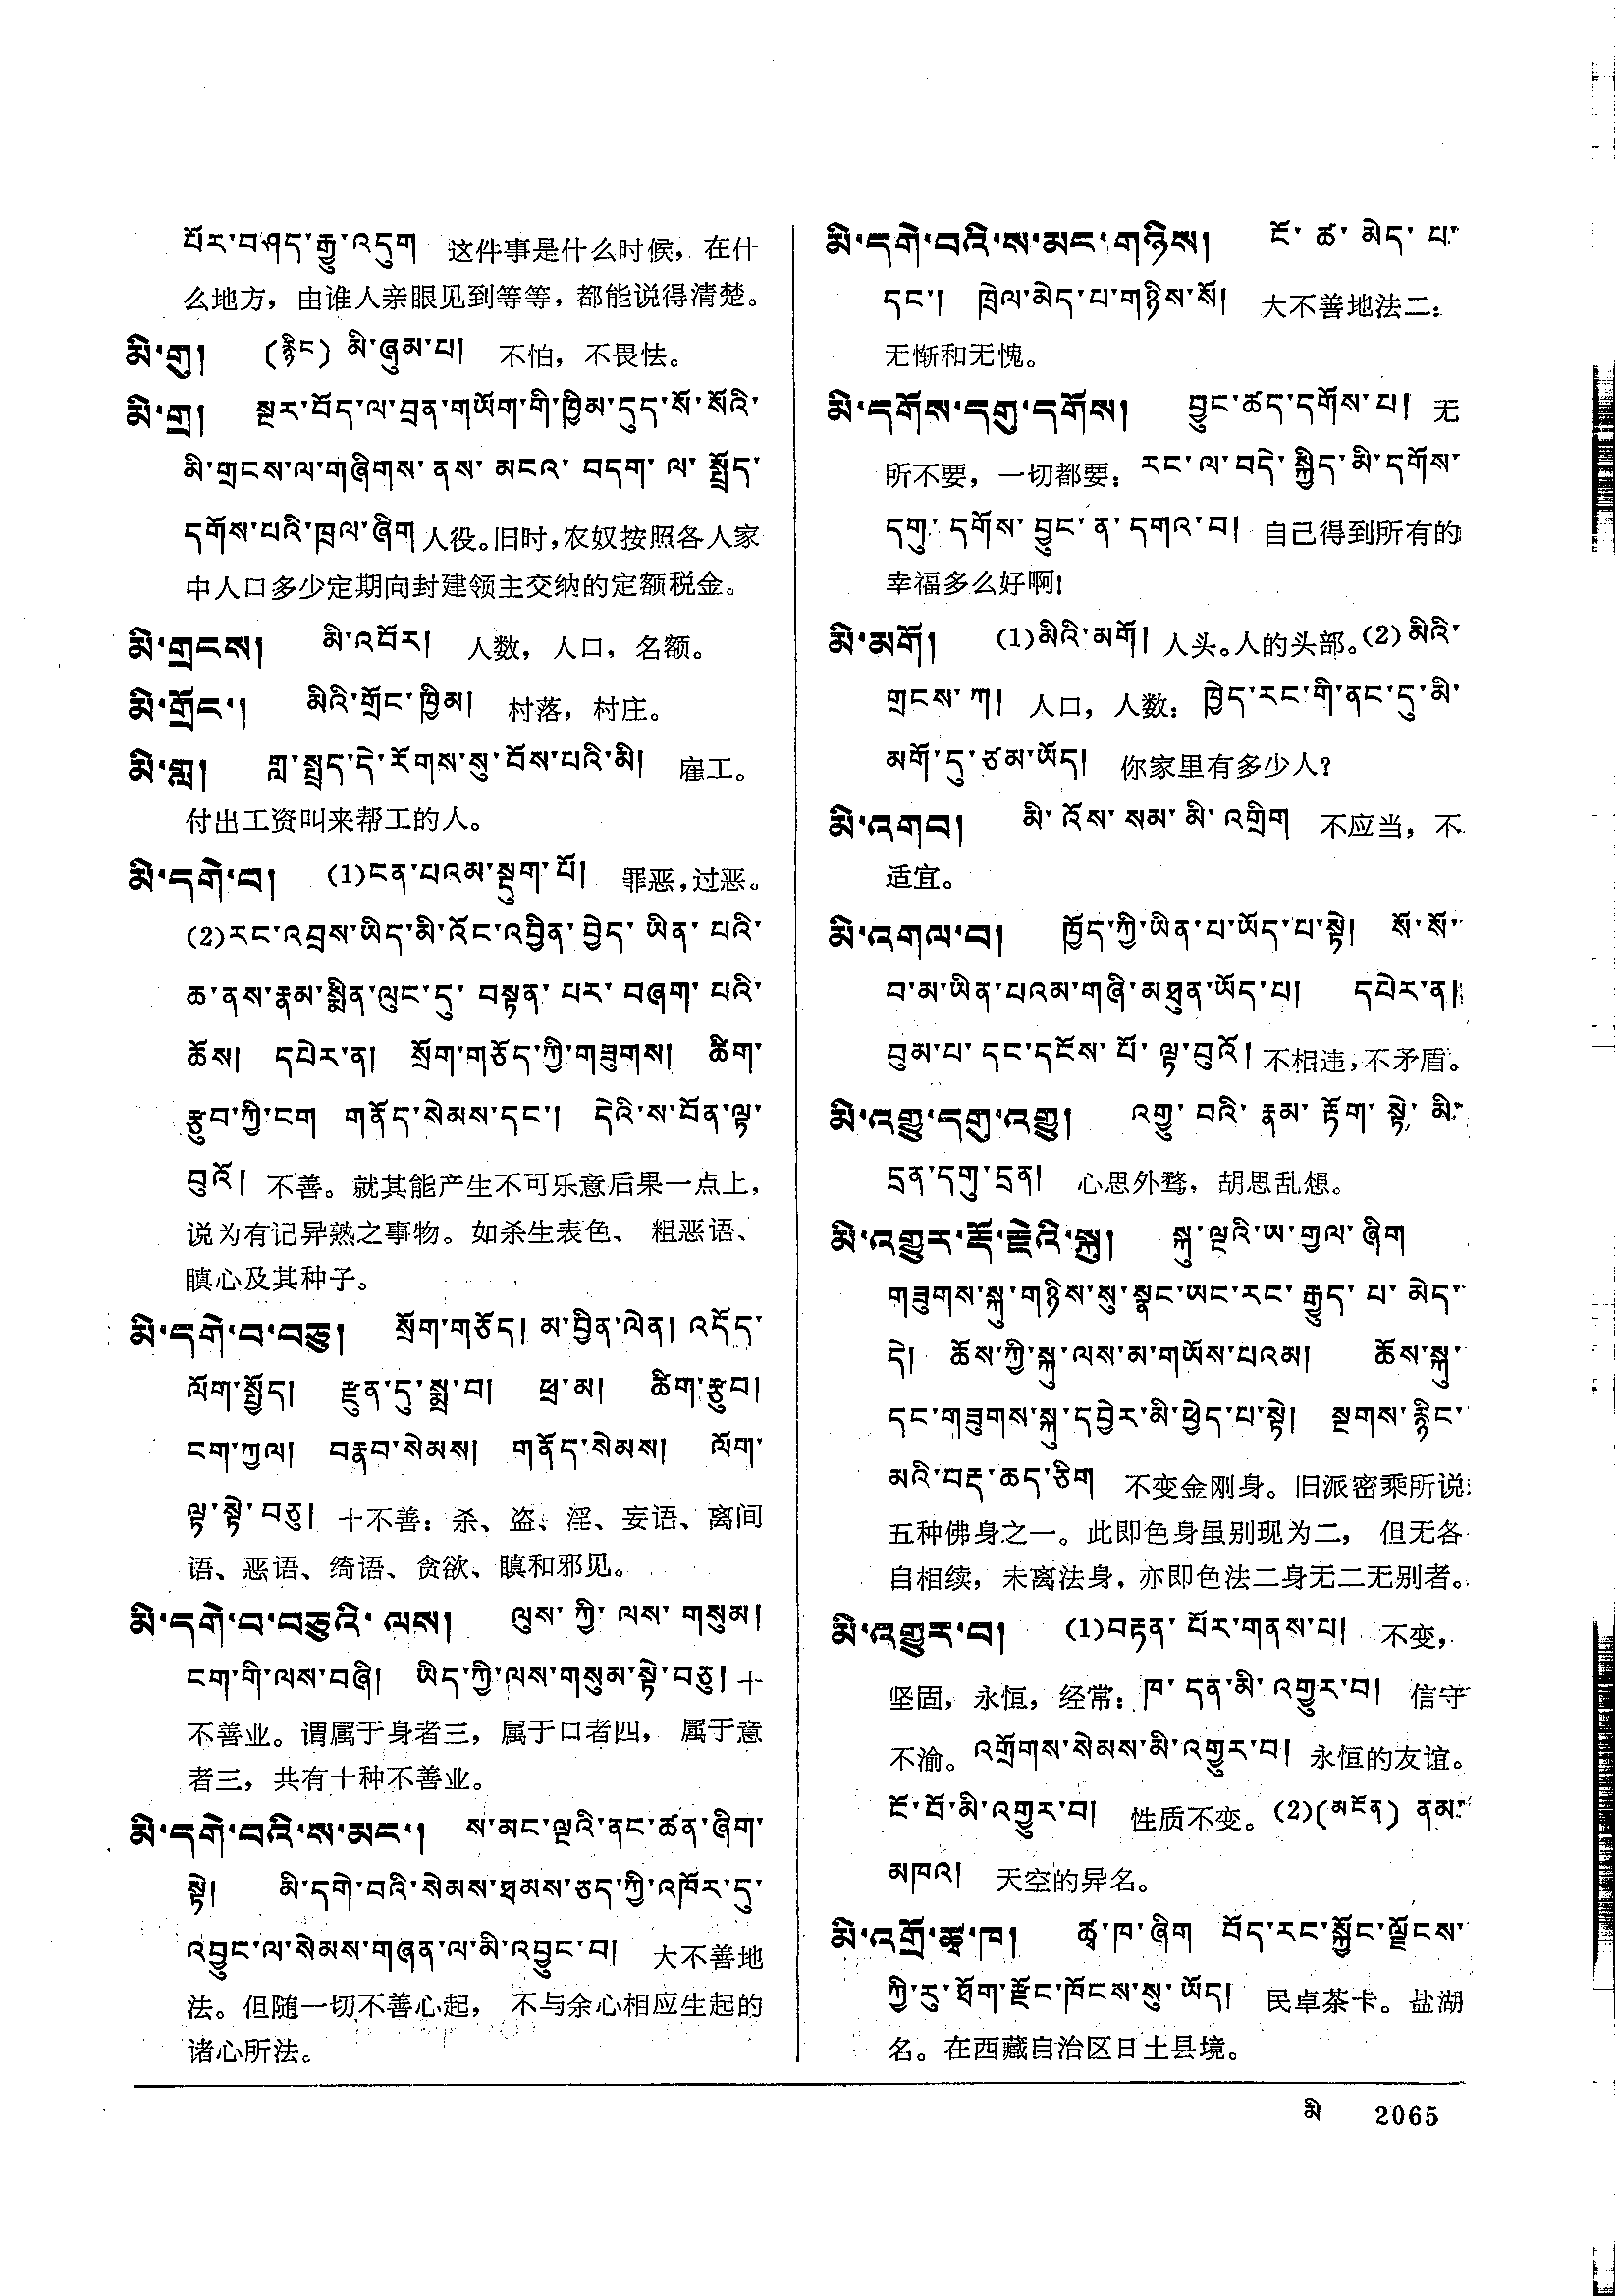 པོར་བཤད་རྒྱུ་འདུག 这件事是什么时候，在什
么地方，由谁人亲眼见到等等，都能说得清楚。
མི་གུ། (རྙིང) མི་ཞུམ་པ། 不怕，不畏怯。
མི་གྲ། སྔར་བོད་ལ་བྲན་གཡོག་གི་ཁྱིམ་དུད་སོ་སོའི་
མི་གྲངས་ལ་གཞིགས་ནས་མངའ་བདག་ལ་སྤྲོད་
དགོས་པའི་ཁྲལ་ཞིག 人役。旧时，农奴按照各人家
中人口多少定期向封建领主交纳的定额税金。
མི་གྲངས། མི་འབོར། 人数，人口，名额。
མི་གྲོང་། མིའི་གྲོང་ཁྱིམ། 村落，村庄。
མི་གླ། གླ་སྤྲད་དེ་རོགས་སུ་བོས་པའི་མི། 雇工。
付出工资叫来帮工的人。
མི་དགེ་བ། (1)ངན་པའམ་སྡུག་པོ། 罪恶，过恶。
(2)རང་འབྲས་ཡིད་མི་འོང་འབྱིན་བྱེད་ཡིན་པའི་
ཆ་ནས་རྣམ་སྨིན་ལུང་དུ་བསྟན་པར་བཞག་པའི་
ཆོས། དཔེར་ན། སྲོག་གཅོད་ཀྱི་གཟུགས། ཚིག་
རྩུབ་ཀྱི་ངག གནོད་སེམས་དང་། དེའི་ས་བོན་ལྟ་
བུའོ། 不善。就其能产生不可乐意后果一点上，
说为有记异熟之事物。如杀生表色、粗恶语、
瞋心及其种子。
མི་དགེ་བ་བཅུ། སྲོག་གཅོད། མ་བྱིན་ལེན། འདོད་
ལོག་སྤྱོད། རྫུན་དུ་སྨྲ་བ། ཕྲ་མ། ཚིག་རྩུབ།
ངག་ཀྱལ། བརྣབ་སེམས། གནོད་སེམས། ལོག་
ལྟ་སྟེ་བཅུ། 十不善：杀、盗、淫、妄语、离间
语、恶语、绮语、贪欲、瞋和邪见。
མི་དགེ་བ་བཅུའི་ལས། ལུས་ཀྱི་ལས་གསུམ།
ངག་གི་ལས་བཞི། ཡིད་ཀྱི་ལས་གསུམ་སྟེ་བཅུ། 十
不善业。谓属于身者三，属于口者四，属于意
者三，共有十种不善业。
མི་དགེ་བའི་ས་མང་། ས་མང་ལྔའི་ནང་ཚན་ཞིག་
སྟེ། མི་དགེ་བའི་སེམས་ཐམས་ཅད་ཀྱི་འཁོར་དུ་
འབྱུང་ལ་སེམས་གཞན་ལ་མི་འབྱུང་བ། 大不善地
法。但随一切不善心起，不与余心相应生起的
诸心所法。
མི་དགེ་བའི་ས་མང་གཉིས། ངོ་ཚ་མེད་པ་
དང་། ཁྲེལ་མེད་པ་གཉིས་སོ། 大不善地法二：
无惭和无愧。
མི་དགོས་དགུ་དགོས། བྱུང་ཚད་དགོས་པ། 无
所不要，一切都要：རང་ལ་བདེ་སྐྱིད་མི་དགོས་
དགུ་དགོས་བྱུང་ན་དགའ་བ། 自己得到所有的
幸福多么好啊！
མི་མགོ། (1)མིའི་མགོ། 人头。人的头部。(2)མིའི་
གྲངས་ཀ། 人口，人数：ཁྱེད་རང་གི་ནང་དུ་མི་
མགོ་དུ་ཙམ་ཡོད། 你家里有多少人？
མི་འགབ། མི་འོས་སམ་མི་འགྲིག 不应当，不
适宜。
མི་འགལ་བ། ཁྱོད་ཀྱི་ཡིན་པ་ཡོད་པ་སྟེ། སོ་སོ་
བ་མ་ཡིན་པའམ་གཞི་མཐུན་ཡོད་པ། དཔེར་ན།
བུམ་པ་དང་དངོས་པོ་ལྟ་བུའོ། 不相违，不矛盾。
མི་འགྱུ་དགུ་འགྱུ། འགྱུ་བའི་རྣམ་རྟོག་སྟེ་མི་
དྲན་དགུ་དྲན། 心思外骛，胡思乱想。
མི་འགྱུར་རྡོ་རྗེའི་སྐུ། སྐུ་ལྔའི་ཨ་གྱལ་ཞིག
གཟུགས་སྐུ་གཉིས་སུ་སྣང་ཡང་རང་རྒྱུད་པ་མེད་
དེ། ཆོས་ཀྱི་སྐུ་ལས་མ་གཡོས་པའམ། ཆོས་སྐུ་
དང་གཟུགས་སྐུ་དབྱེར་མི་ཕྱེད་པ་སྟེ། སྔགས་རྙིང་
མའི་བརྡ་ཆད་ཅིག 不变金刚身。旧派密乘所说
五种佛身之一。此即色身虽别现为二，但无各
自相续，未离法身，亦即色法二身无二无别者。
མི་འགྱུར་བ། (1)བརྟན་པོར་གནས་པ། 不变，
坚固，永恒，经常：ཁ་དན་མི་འགྱུར་བ། 信守
不渝。འགྲོགས་སེམས་མི་འགྱུར་བ། 永恒的友谊。
ངོ་བོ་མི་འགྱུར་བ། 性质不变。(2)(མངོན) ནམ་
མཁའ། 天空的异名。
མི་འགྲོ་ཚྭ་ཁ། ཚྭ་ཁ་ཞིག བོད་རང་སྐྱོང་ལྗོངས་
ཀྱི་རུ་ཐོག་རྫོང་ཁོངས་སུ་ཡོད། 民卓茶卡。盐湖
名。在西藏自治区日土县境。
མི 2065